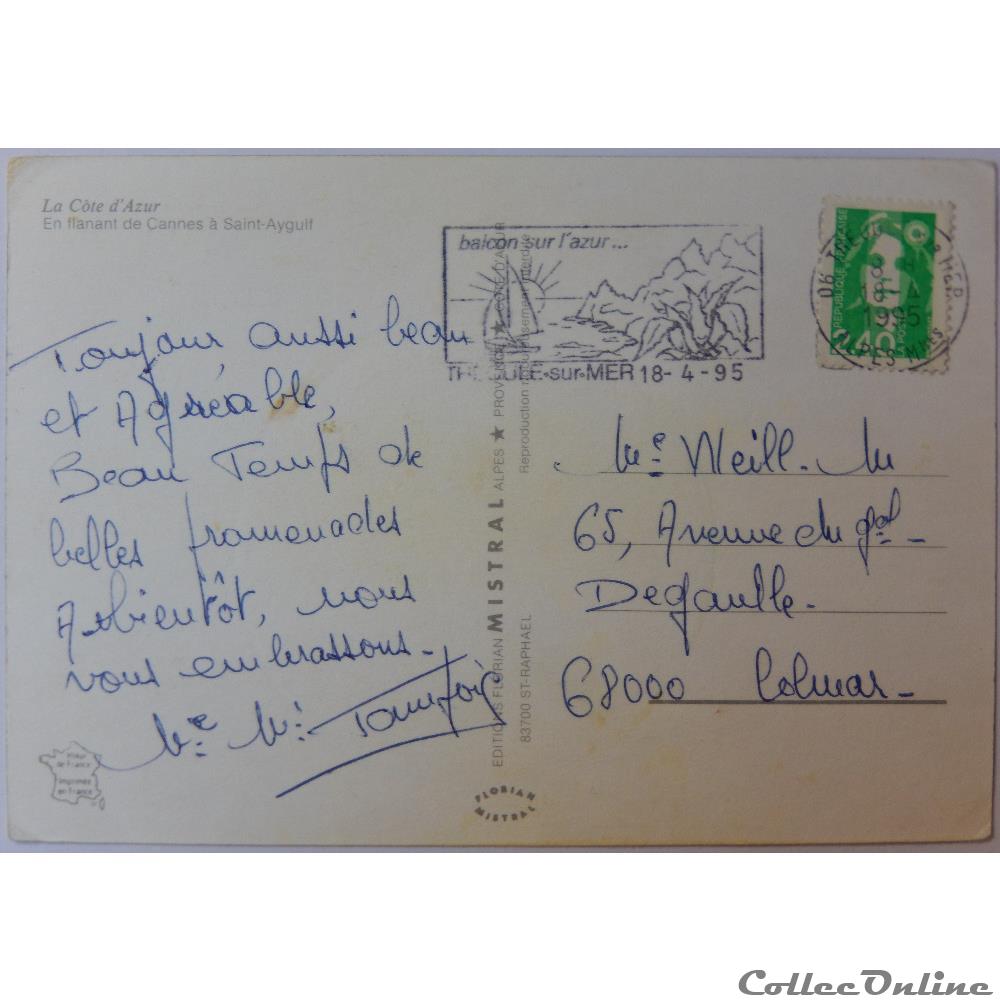 La Côte d'Azur
En flanant de Cannes à Saint-Aygulf
balcon sur l'azur...
sur-MER 18-4-95
Toujour aussi beau
et Agréable,
Beau Temps de
belles promenades
A bientôt, nous
vous embrassons.
Me Mr
Me Meill. M
65, Avenue du gal
Degaulle.
68000 Colmar
EDITIONS FLORIAN MISTRAL ALPES ★ PROVENCE ★ CÔTE D'AZUR
83700 ST-RAPHAEL
Reproduction interdite
RÉPUBLIQUE FRANÇAISE
LA POSTE
1995
imprimée
en France
FLORIAN
MISTRAL
CollecOnline